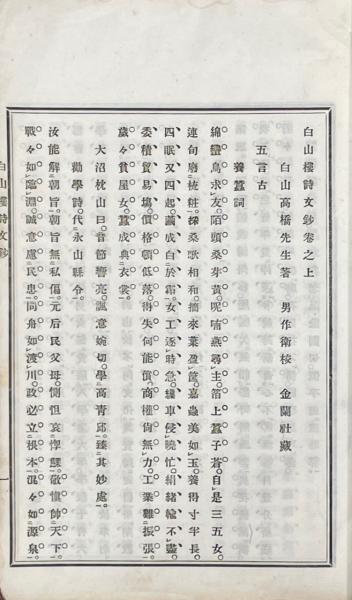 白山樓詩文鈔卷之上
白山高橋先生著 男作衛校 金蘭社藏
五言古
養蠶詞
綿蠻鳥求友。陌頭桑芽黃。呢喃燕尋主。箔上蠶子蒼。自是三五女。
連句廢梳粧。採桑歌相和。摘來葉盈筐。嘉蟲美如玉。養得寸半長。
四眠又四起。繭成白於霜。女工逐時急。繰車侵曉忙。絹緒輸不盡。
委積貿易塲。價格頓低落。得失何能償。商權尚無力。工業難振張。
歲々貧屋女。蠶成典衣裳。
大沼枕山曰。音節響亮。諷意婉切。學高青邱。臻其妙處。
勸學詩。代永山縣令。
汝能解朝旨。朝旨無私偏。元后民父母。惻怛哀惸鰥。敬愼帥天下。
戰々如臨淵。誠意慮民患。同舟如渡川。政必立根本。混々如源泉。
白山樓詩文鈔